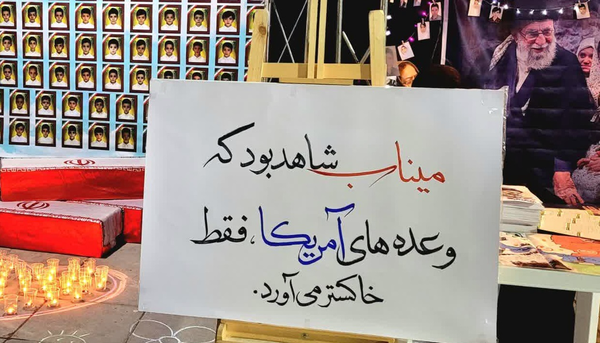 میناب شاهد بود که
وعده های آمریکا، فقط
خاکستر می آورد.